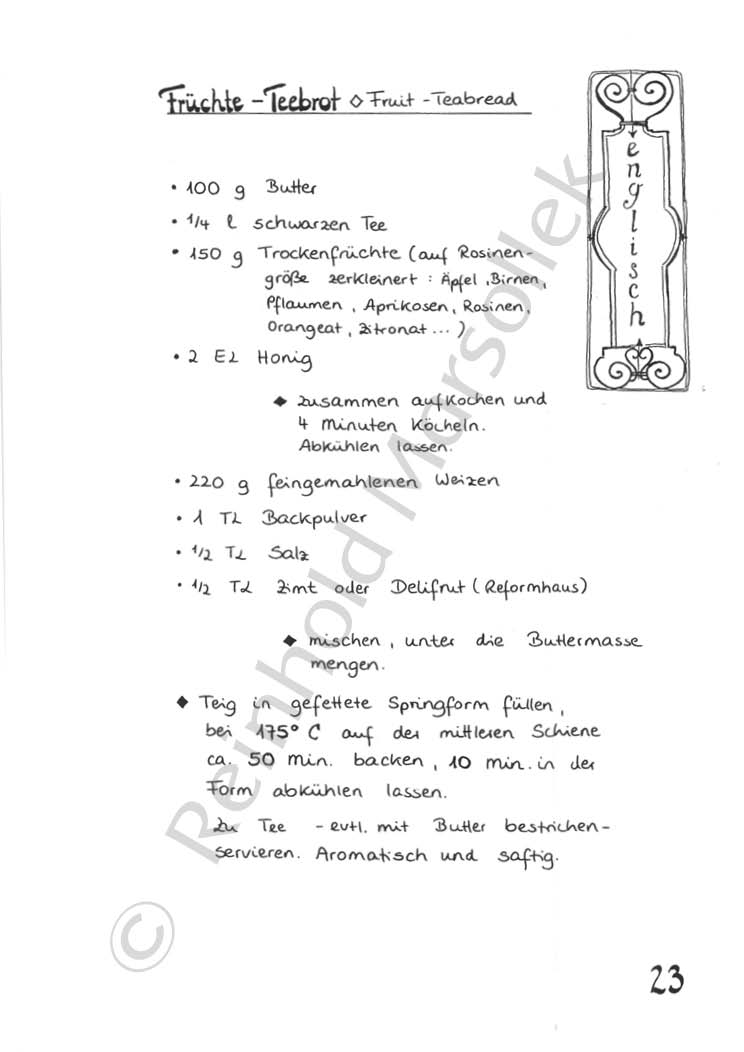 Früchte - Teebrot ◇ Fruit - Teabread
englisch
• 100 g Butter
• 1/4 l schwarzen Tee
• 150 g Trockenfrüchte (auf Rosinen-
größe zerkleinert : Äpfel, Birnen,
Pflaumen, Aprikosen, Rosinen,
Orangeat, Zitronat ... )
• 2 EL Honig
◆ zusammen aufkochen und
4 Minuten köcheln.
Abkühlen lassen.
• 220 g feingemahlenen Weizen
• 1 TL Backpulver
• 1/2 TL Salz
• 1/2 TL Zimt oder Delifrut (Reformhaus)
◆ mischen, unter die Buttermasse
mengen.
◆ Teig in gefettete Springform füllen,
bei 175° C auf der mittleren Schiene
ca. 50 Min. backen, 10 min. in der
Form abkühlen lassen.
Zu Tee - evtl. mit Butter bestrichen -
servieren. Aromatisch und saftig.
© Reinhold Marsollek
23